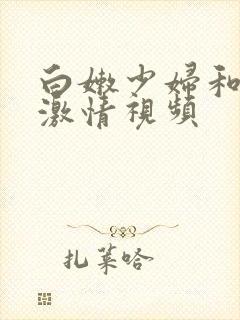 白嫩少婦和
激情視頻
扎萊哈